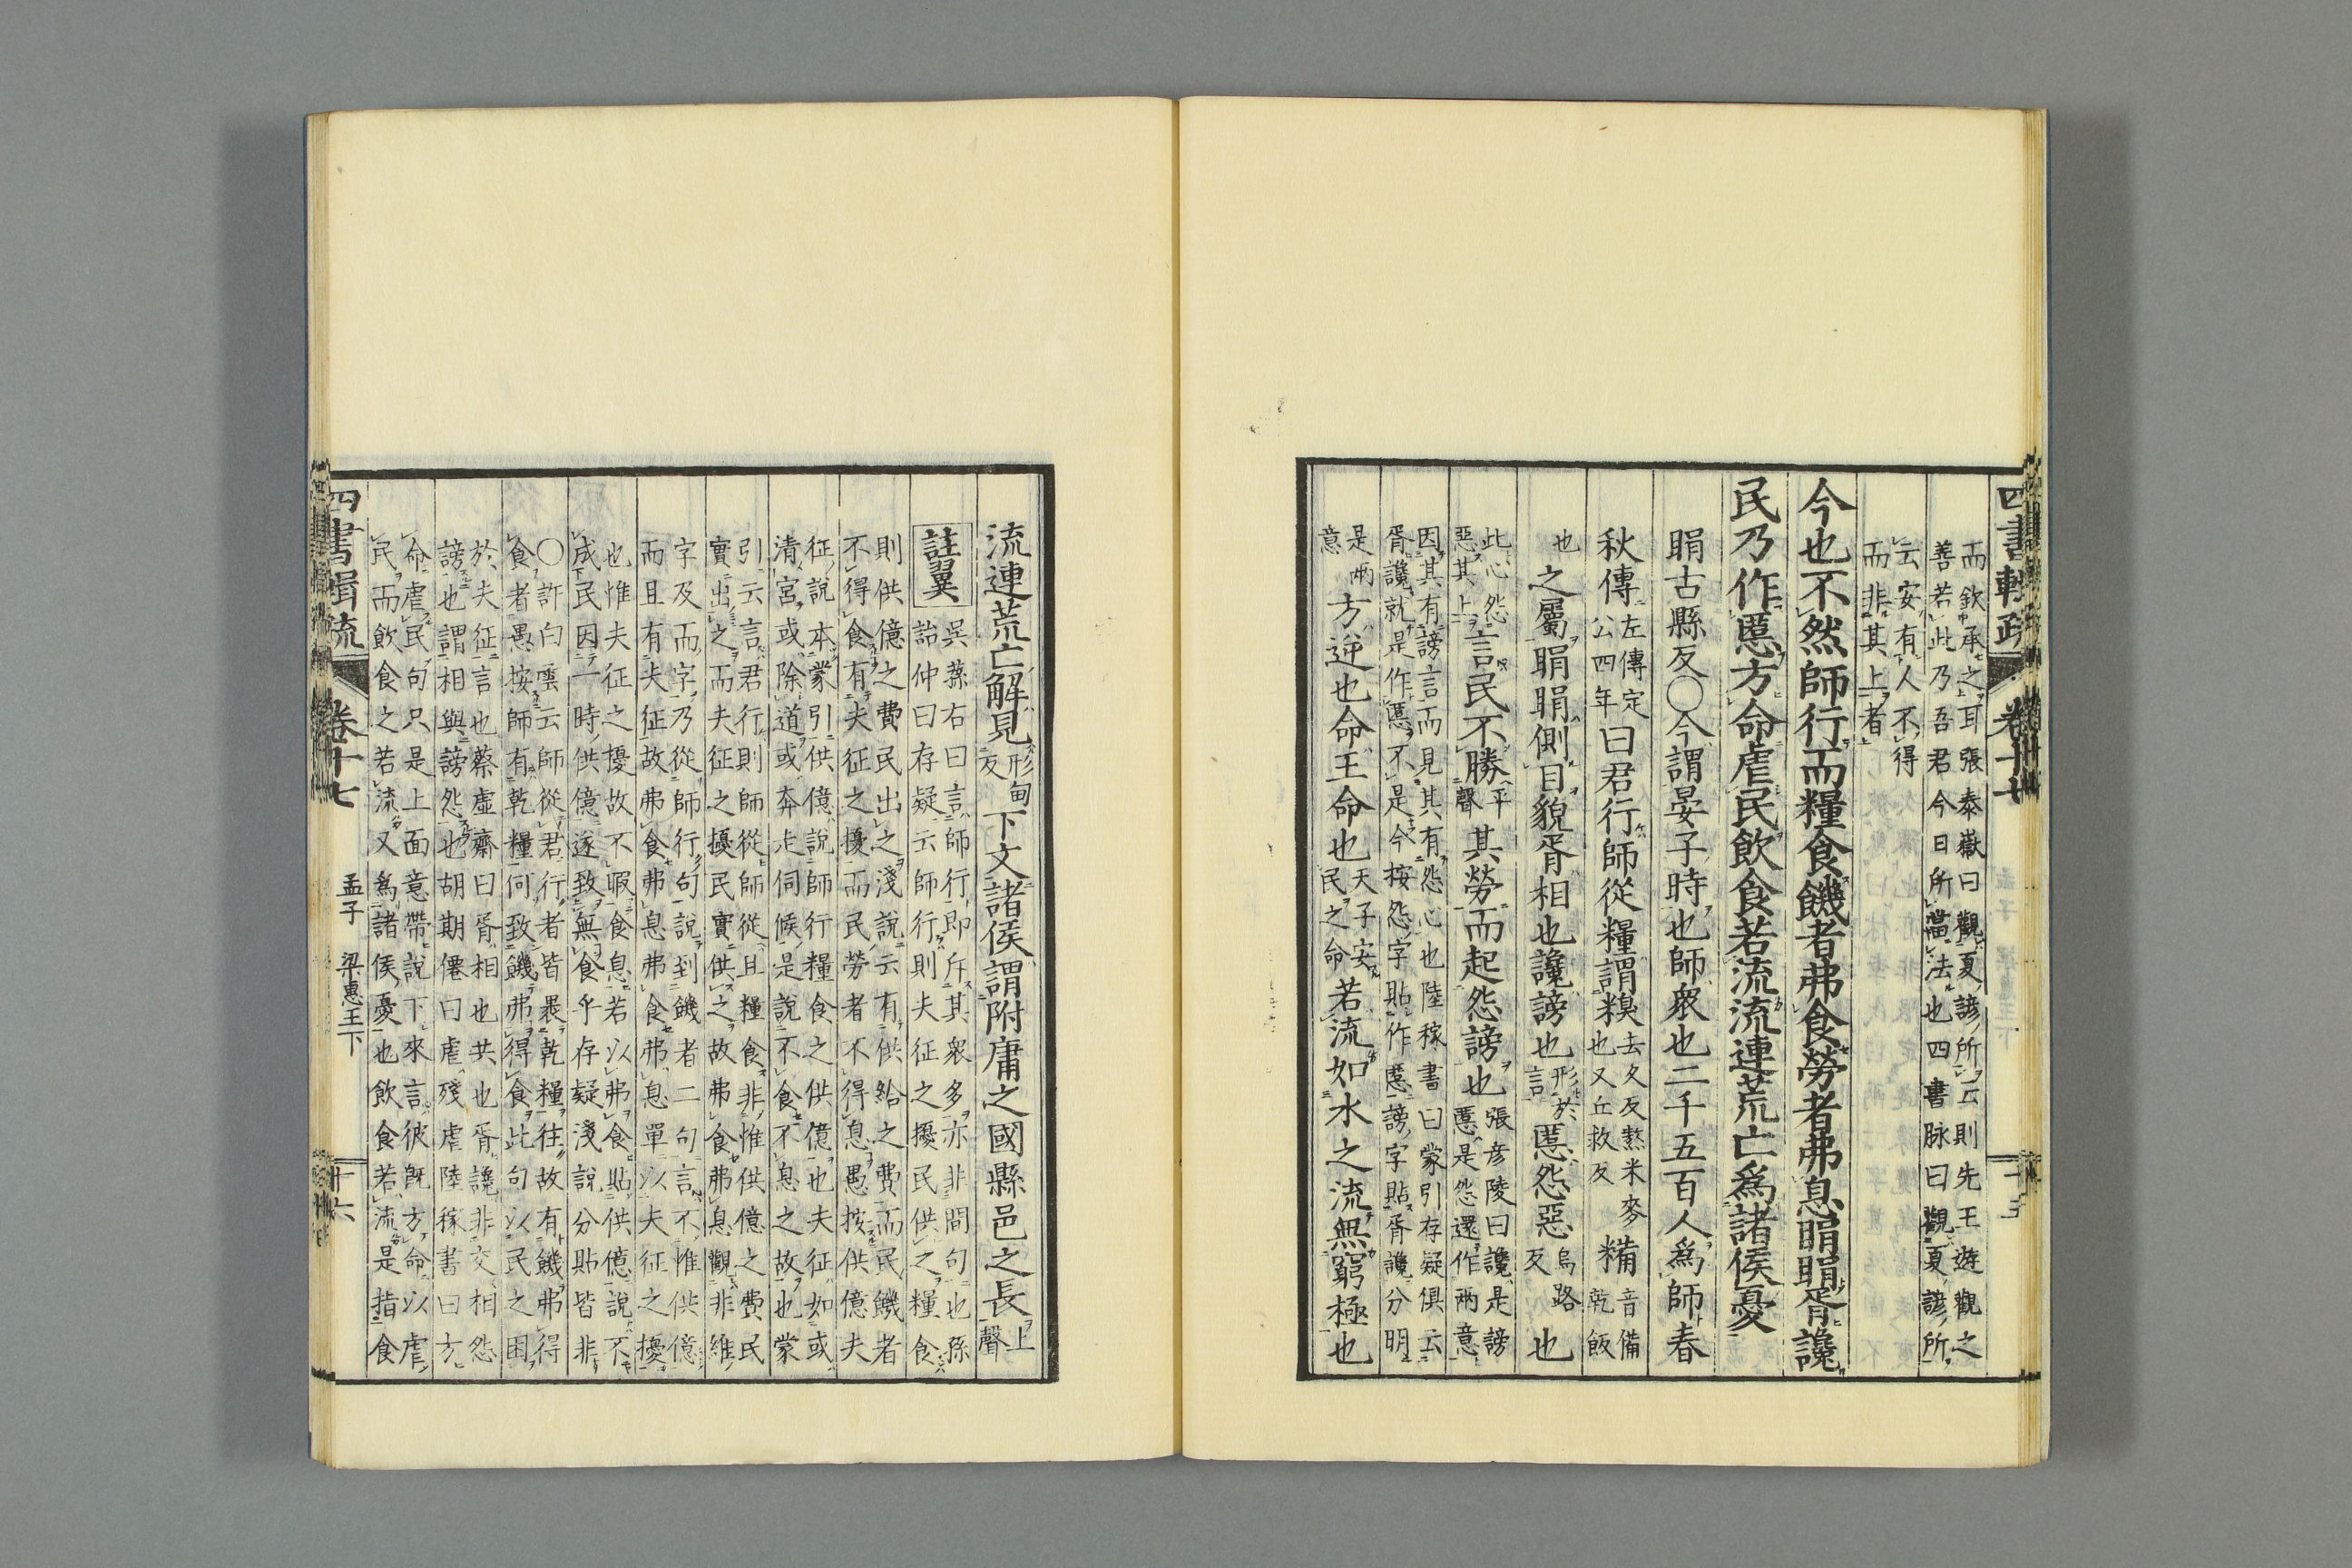 而欽承之耳張泰嶽曰觀夏諺所云則先王遊觀之
善若此乃吾君今日所當法也四書脉曰觀夏諺所
云安有人不得
而非其上者
今也不然師行而糧食饑者弗食勞者弗息睊睊胥讒
民乃作慝方命虐民飲食若流流連荒亡爲諸侯憂
睊古縣反○今謂晏子時也師衆也二千五百人爲師春
秋傳左傳定公四年曰君行師從糧謂糗去久反熬米麥也又丘救反糒音備乾飯
也之屬睊睊側目貌胥相也讒謗也言形於慝怨惡烏路反也
此心怨惡其上言民不勝平聲其勞而起怨謗也張彥陵曰讒是謗慝是怨還作兩意
因其有謗言而見其有怨心也陸稼書曰蒙引存疑俱云
胥讒就是作慝不是今按怨字貼作慝謗字貼胥讒分明
是兩意方逆也命王命也天子安民之命若流如水之流無窮極也
流連荒亡解見形甸反下文諸侯謂附庸之國縣邑之長上聲
註翼
吳蓀右曰言師行即斥其衆多亦非閒句也孫
詒仲曰存疑云師行則夫征之擾民供之糧食
則供億之費民出之淺說云有供給之費而民饑者
不得食有夫征之擾而民勞者不得息愚按供億夫
征說本蒙引供億說師行糧食之供億也夫征如或
清宮或除道或奔走伺候是說不食不息之故也蒙
引云言君行則師從師從且糧食非惟供億之費民
實出之而夫征之擾民實供之故弗食弗息觀非維
字及而字乃從師行句說到饑者二句言不惟供億
而且有夫征故弗食弗息弗食弗息單以夫征之擾
也惟夫征之擾故不暇食息若以弗食貼供億說不
成民因一時供億遂致無食乎存疑淺說分貼皆非
○許白雲云師從君行者皆褁乾糧往故有饑弗得
食者愚按師有乾糧何致饑弗得食此句以民之困
於夫征言也蔡虛齋曰胥相也共也胥讒非交相怨
謗也謂相與謗怨也胡期僊曰虐殘虐陸稼書曰方
命虐民句只是上面意帶說下來言彼旣方命以虐
民而飲食之若流又爲諸侯憂也飲食若流是指食
四書輯疏
卷十七
孟子 梁惠王下
十六